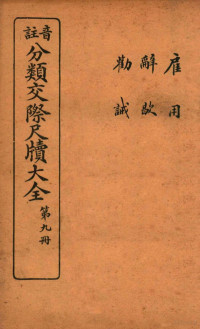 雇用
辭歐
勸誡
音註
分類交際尺牘大全
第九冊